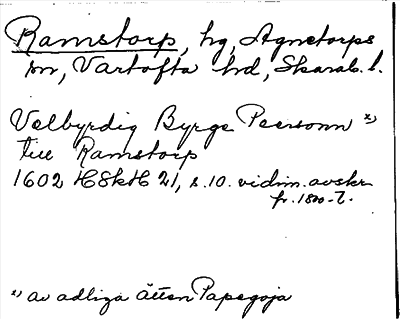 Ramstorp, hg, Agnetorps
sn, Vartofta hd, Skarab. l.
Velbyrdig Byrge Peersonn x)
till Ramstorp
1602 HSkH 21, s. 10. vidim. avskr.
fr. 1800-t.
x) av adliga ätten Papegoja